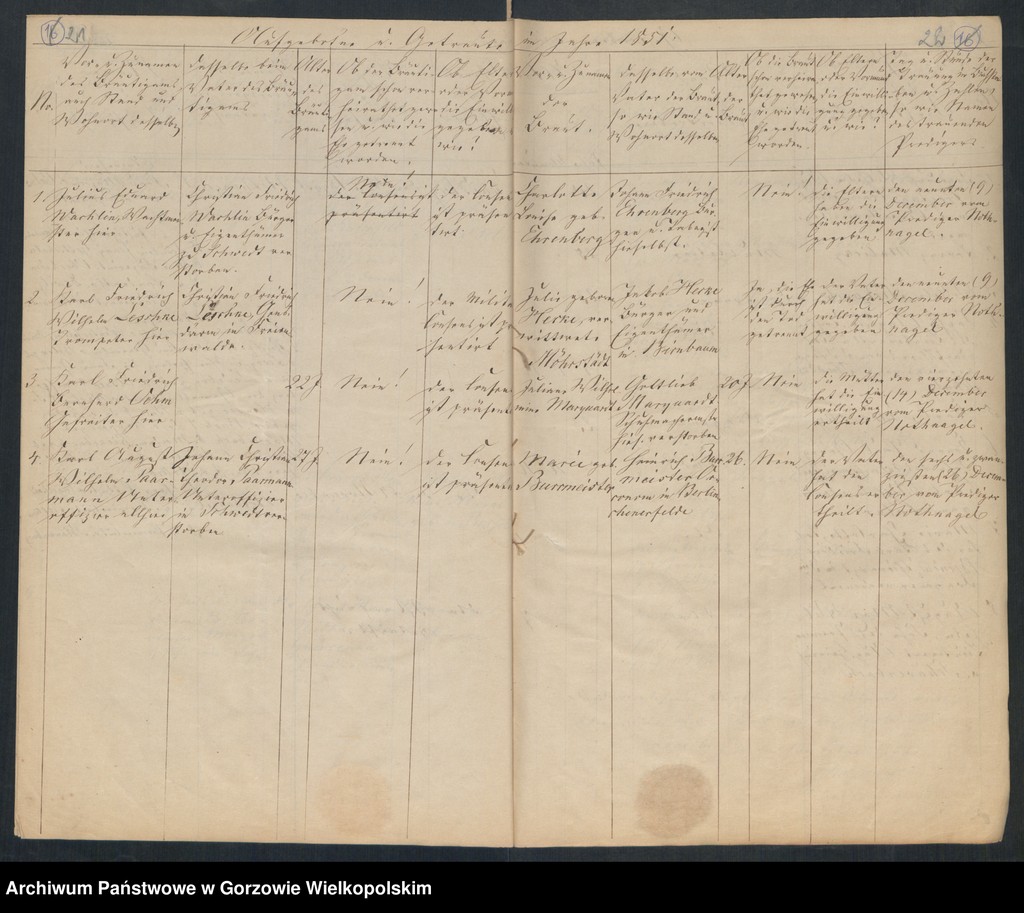 16 21
22 16
Aufgebotene u. Getraute im Jahre 1851.
No.
Vor- u. Zunamen
des Bräutigams
nach Stand und
Wohnort desselben
desselben beim
Vater des Bräu-
tigams
Alter
des
Bräuti-
gams
Ob der Bräuti-
gam schon ver-
heirathet gewe-
sen u. wie die
Ehe getrennt
worden.
Ob Eltern
oder Vorm.
die Einwill.
gegeben
wie?
Vor- u. Zuname
der
Braut.
desselben vom
Vater der Braut
so wie Stand u.
Wohnort desselben
Alter
der
Braut
Ob die Braut
schon verheira-
thet gewesen
u. wie die
Ehe getrennt
worden.
Ob Eltern
oder Vormund
die Einwilli-
gung gegeben
u. wie?
Tag u. Stunde der
Trauung in Buchsta-
ben u. Zahlen,
so wie Namen
des trauenden
Predigers.
1.
Julius Eduard
Wachlin, Wachtmei-
ster hier
Christian Friedrich
Wachlin Bürger
u. Eigenthümer
zu Schwedt ver-
storben.
Nein!
der Consens ist
präsentirt
der Consens
ist präsen-
tirt.
Charlotte
Louise geb.
Ehrenberg
Johann Friedrich
Ehrenberg Bür-
ger u.
hieselbst.
Nein!
die Eltern
haben die
Einwilligung
gegeben
den neunten (9)
December vom
Prediger Noth-
nagel.
2.
Karl Friedrich
Wilhelm Leschke
Trompeter hier
Christian Friedrich
Leschke, Gens-
darm in Freien-
walde.
Nein!
der Militär
Consens ist prä-
sentirt
Julie geborne
Hecke, ver-
wittwete
Möhrstädt
Jakob Hecke
Bürger und
Eigenthümer
in Birnbaum
Ja, die Ehe
ist durch
den Tod
getrennt
der Vater
hat die Ein-
willigung
gegeben
den neunten (9)
December vom
Prediger Noth-
nagel
3
Karl Friedrich
Bernhard Oehm
Gefreiter hier
22 J.
Nein!
der Consens
ist präsent.
Juliane Wilhel-
mine Marquardt
Gottlieb
Marquardt
Schuhmachermstr
hies. verstorben
20 J.
Nein
die Mutter
hat die Ein-
willigung
ertheilt
den vierzehnten
(14) December
vom Prediger
Nothnagel.
4.
Karl August
Wilhelm Paar-
mann Unter-
offizier allhier
Johann Christian
Theodor Paarmann
Unteroffizier
in Schwedt ver-
storben
27 J.
Nein!
der Consens
ist präsent.
Marie geb.
Burmeister
Heinrich Bur-
meister
in Berlin-
chenerfelde
26.
Nein
der Vater
hat den
Consens er-
theilt.
den sechs u. zwan-
zigsten (26) Decem-
ber vom Prediger
Nothnagel
Archiwum Państwowe w Gorzowie Wielkopolskim